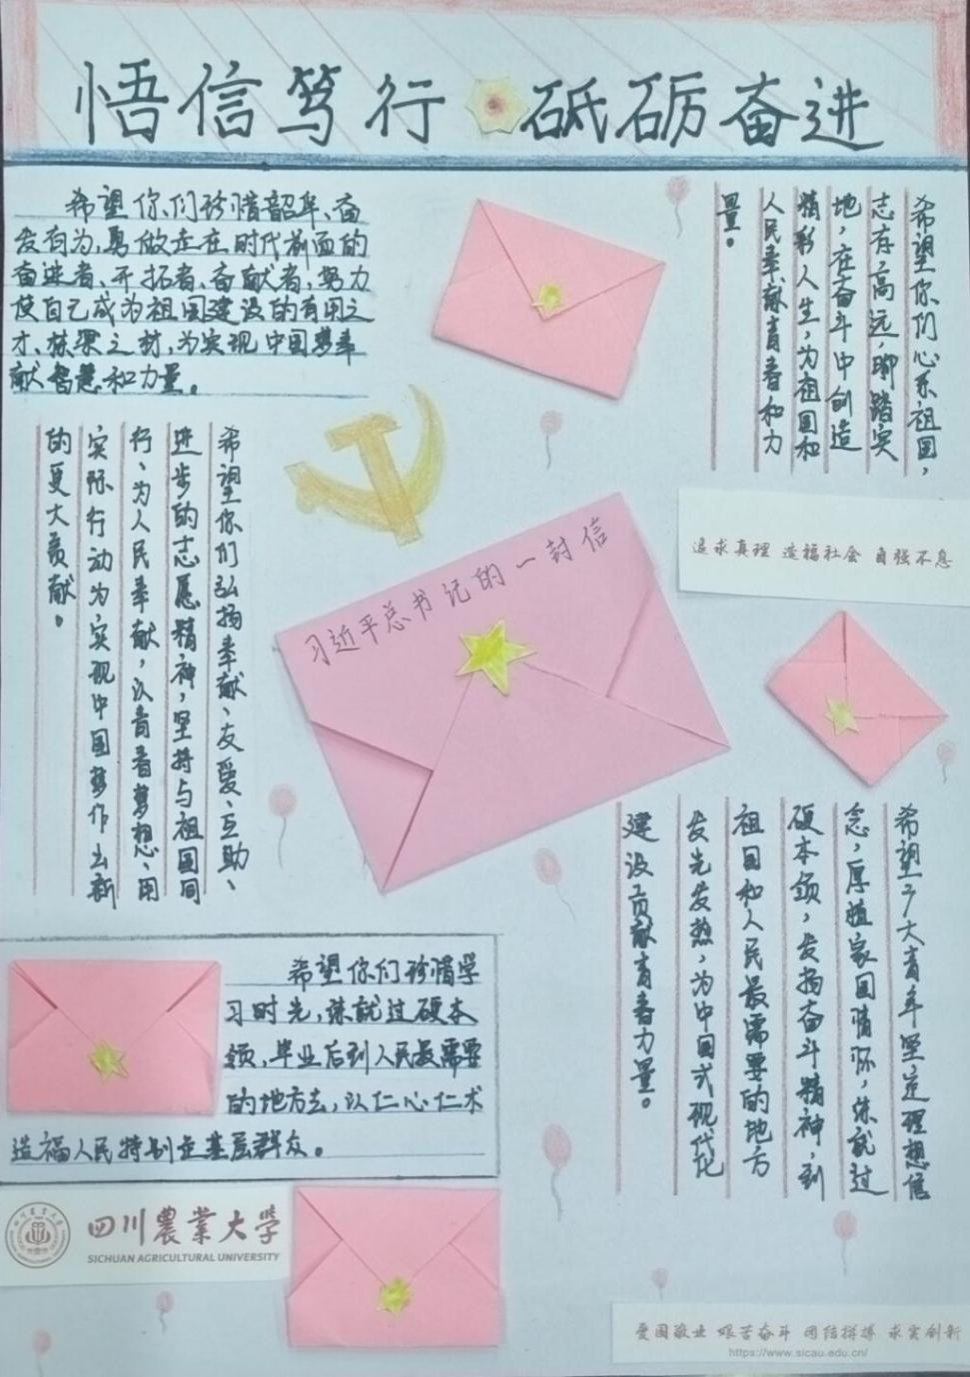 悟信笃行 砥砺奋进
希望你们珍惜韶华、奋
发有为,勇做走在时代前面的
奋进者、开拓者、奋献者,努力
使自己成为祖国建设的有用之
才、栋梁之材,为实现中国梦奉
献智慧和力量。
希望你们心系祖国,
志存高远,脚踏实
地,在奋斗中创造
精彩人生,为祖国和
人民奉献青春和力
量。
希望你们弘扬奉献、友爱、互助、
进步的志愿精神,坚持与祖国同
行、为人民奉献,以青春梦想、用
实际行动为实现中国梦作出新
的更大贡献。
习近平总书记的一封信
追求真理 造福社会 自强不息
希望广大青年坚定理想信
念,厚植家国情怀,练就过
硬本领,发扬奋斗精神,到
祖国和人民最需要的地方
发光发热,为中国式现代化
建设贡献青春力量。
希望你们珍惜学
习时光,练就过硬本
领,毕业后到人民最需要
的地方去,以仁心仁术
造福人民特别是基层群众。
四川農業大学
SICHUAN AGRICULTURAL UNIVERSITY
爱国敬业 艰苦奋斗 团结拼搏 求实创新
https://www.sicau.edu.cn/